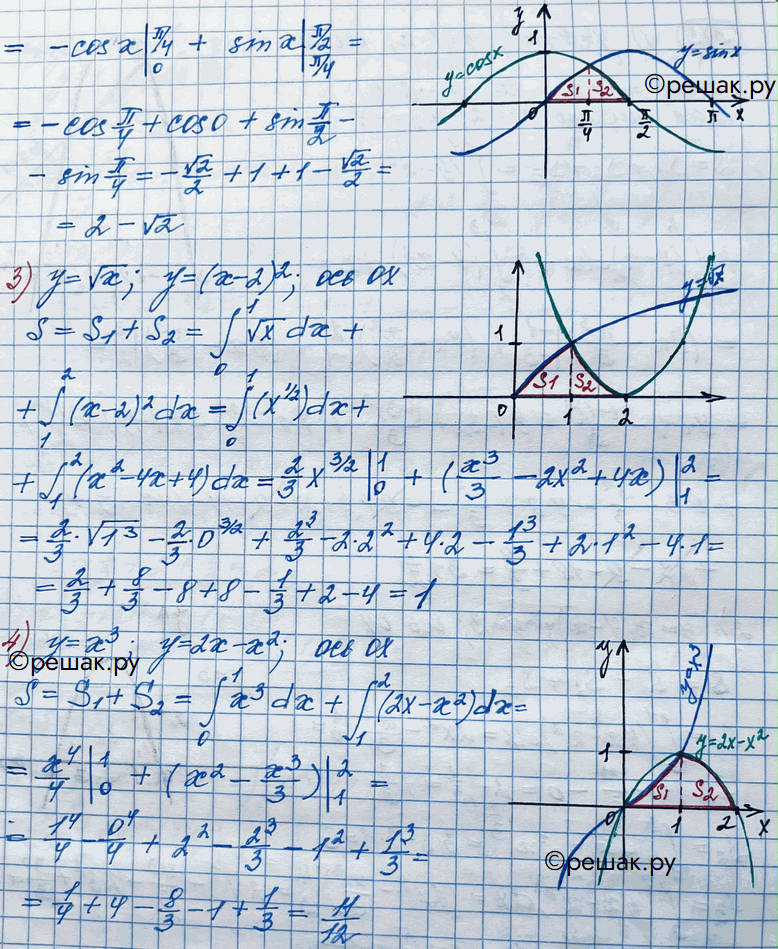 = -cos x |₀^(π/4) + sin x |_(π/4)^(π/2) =
= -cos π/4 + cos 0 + sin π/2 -
- sin π/4 = -√2/2 + 1 + 1 - √2/2 =
= 2 - √2
y
1
y=cosx
y=sinx
S₁ S₂
0 π/4 π/2 π x
©решак.ру
3) y=√x; y=(x-2)²; ось ох
S = S₁ + S₂ = ∫₀¹ √x dx +
+ ∫₁² (x-2)² dx = ∫₀¹ (x^(1/2)) dx +
+ ∫₁² (x² - 4x + 4) dx = 2/3 x^(3/2) |₀¹ + (x³/3 - 2x² + 4x) |₁² =
= 2/3 · √1³ - 2/3 · 0^(3/2) + 2³/3 - 2·2² + 4·2 - 1³/3 + 2·1² - 4·1 =
= 2/3 + 8/3 - 8 + 8 - 1/3 + 2 - 4 = 1
y=√x
1
S1 S2
0 1 2
4) y=x³; y=2x-x²; ось ох
©решак.ру
S = S₁ + S₂ = ∫₀¹ x³ dx + ∫₁² (2x-x²) dx =
= x⁴/4 |₀¹ + (x² - x³/3) |₁² =
= 1⁴/4 - 0⁴/4 + 2² - 2³/3 - 1² + 1³/3 =
= 1/4 + 4 - 8/3 - 1 + 1/3 = 11/12
y
y=x³
1
y=2x-x²
S₁ S₂
0 1 2 x
©решак.ру